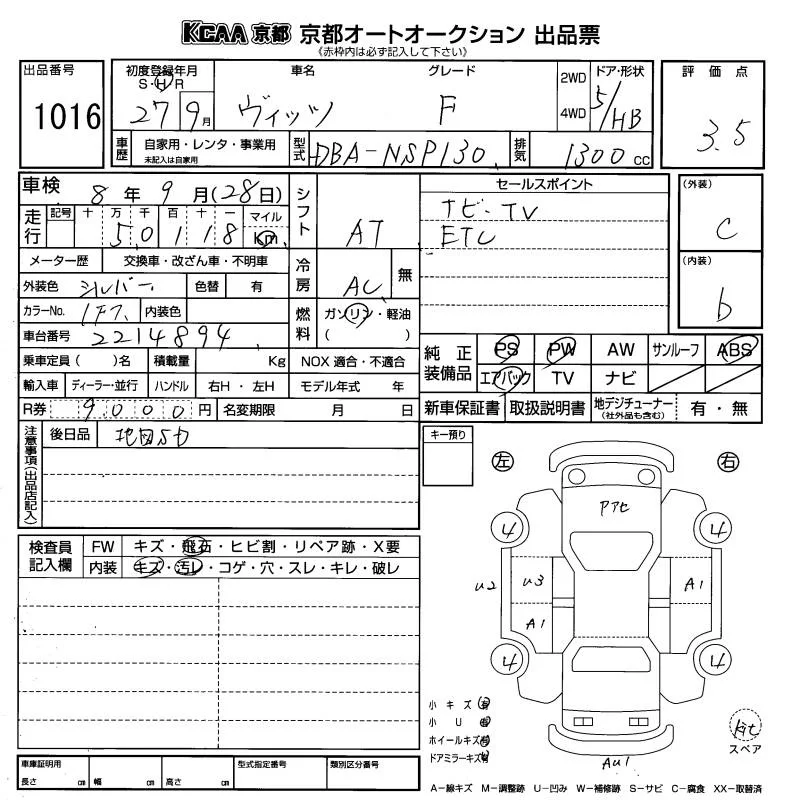 KCAA 京都 京都オートオークション 出品票
《赤枠内は必ず記入して下さい》
出品番号 1016
初度登録年月 S・H・R 27 9月
車名 ヴィッツ
グレード F
2WD 4WD
ドア・形状 5/HB
評価点 3.5
車歴 自家用・レンタ・事業用
未記入は自家用
型式 DBA-NSP130
排気 1300 cc
車検 8年 9月(28日)
シフト AT
セールスポイント
ナビ・TV
ETC
(外装) C
(内装) b
走行 記号 十 万 千 百 十 一 マイル
5 0 1 1 8 km
メーター歴 交換車・改ざん車・不明車
冷房 AC 無
外装色 シルバー 色替 有
カラーNo. 1F7 内装色
燃料 ガソリン・軽油
( )
車台番号 2214894
乗車定員( )名 積載量 Kg NOX 適合・不適合
純正装備品 PS PW AW サンルーフ ABS
エアバック TV ナビ
輸入車 ディーラー・並行 ハンドル 右H・左H モデル年式 年
R券 9000円 名変期限 月 日
新車保証書 取扱説明書 地デジチューナー(社外品も含む) 有・無
注意事項(出品店記入)
後日品 地図SD
キー預り
左 右
検査員記入欄 FW キズ・飛石・ヒビ割・リペア跡・X要
内装 キズ・汚レ・コゲ・穴・スレ・キレ・破レ
4 4
U2 U3 A1
A1
4 4
AU1
小キズ 有
小U 有
ホイールキズ 有
ドアミラーキズ 有
スペア
車庫証明用 型式指定番号 類別区分番号
長さ cm 幅 cm 高さ cm
A-線キズ M-調整跡 U-凹み W-補修跡 S-サビ C-腐食 XX-取替済